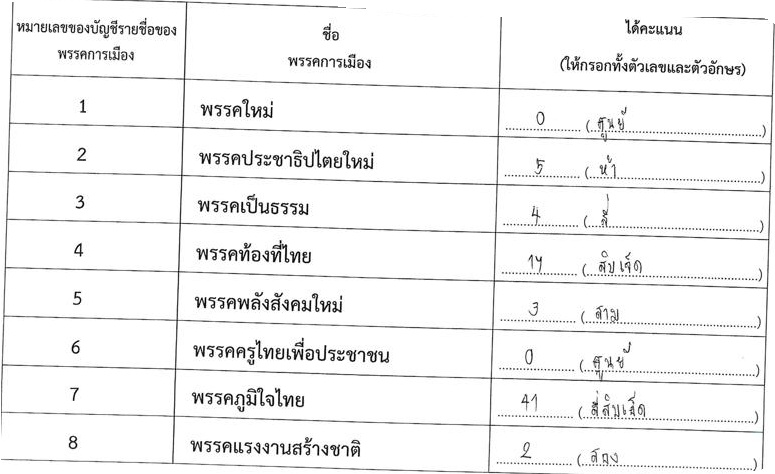 หมายเลขของบัญชีรายชื่อของ
พรรคการเมือง
ชื่อ
พรรคการเมือง
ได้คะแนน
(ให้กรอกทั้งตัวเลขและตัวอักษร)
1 พรรคใหม่ 0 (ศูนย์)
2 พรรคประชาธิปไตยใหม่ 5 (ห้า)
3 พรรคเป็นธรรม 4 (สี่)
4 พรรคท้องที่ไทย 17 (สิบเจ็ด)
5 พรรคพลังสังคมใหม่ 3 (สาม)
6 พรรคครูไทยเพื่อประชาชน 0 (ศูนย์)
7 พรรคภูมิใจไทย 47 (สี่สิบเจ็ด)
8 พรรคแรงงานสร้างชาติ 2 (สอง)